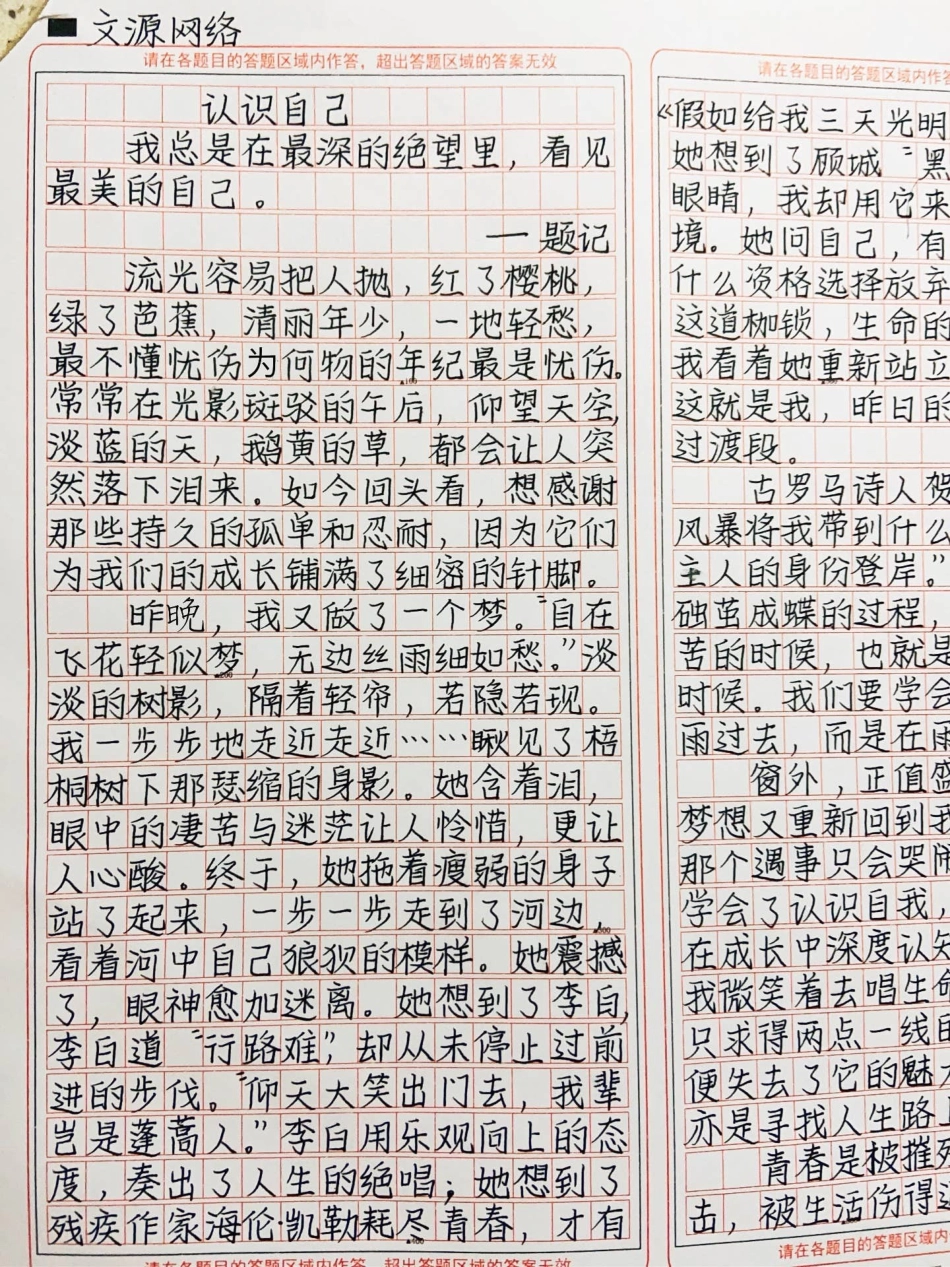 文源网络
请在各题目的答题区域内作答，超出答题区域的答案无效
认识自己
我总是在最深的绝望里，看见
最美的自己。
—题记
流光容易把人抛，红了樱桃，
绿了芭蕉，清丽年少，一地轻愁，
最不懂忧伤为何物的年纪最是忧伤。
常常在光影斑驳的午后，仰望天空，
淡蓝的天，鹅黄的草，都会让人突
然落下泪来。如今回头看，想感谢
那些持久的孤单和忍耐，因为它们
为我们的成长铺满了细密的针脚。
昨晚，我又做了一个梦。“自在
飞花轻似梦，无边丝雨细如愁。”淡
淡的树影，隔着轻帘，若隐若现。
我一步步地走近走近……瞅见了梧
桐树下那瑟缩的身影。她含着泪，
眼中的凄苦与迷茫让人怜惜，更让
人心酸。终于，她拖着瘦弱的身子
站了起来，一步一步走到了河边，
看着河中自己狼狈的模样。她震撼
了，眼神愈加迷离。她想到了李白，
李白道“行路难”，却从未停止过前
进的步伐。“仰天大笑出门去，我辈
岂是蓬蒿人。”李白用乐观向上的态
度，奏出了人生的绝唱；她想到了
残疾作家海伦·凯勒耗尽青春，才有
请在各题目的答题区域内作答，超出答题区域的答案无效
请在各题目的答题区域内作答
《假如给我三天光明
她想到了顾城“黑
眼睛，我却用它来
境。她问自己，有
什么资格选择放弃
这道枷锁，生命的
我看着她重新站立
这就是我，昨日的
过渡段。
古罗马诗人贺
风暴将我带到什么
主人的身份登岸。”
础茧成蝶的过程，
苦的时候，也就是
时候。我们要学会
雨过去，而是在雨
窗外，正值盛
梦想又重新回到我
那个遇事只会哭闹
学会了认识自我，
在成长中深度认知
我微笑着去唱生命
只求得两点一线的
便失去了它的魅力
亦是寻找人生路上
青春是被摧残
击，被生活伤得遍
请在各题目的答题区域内